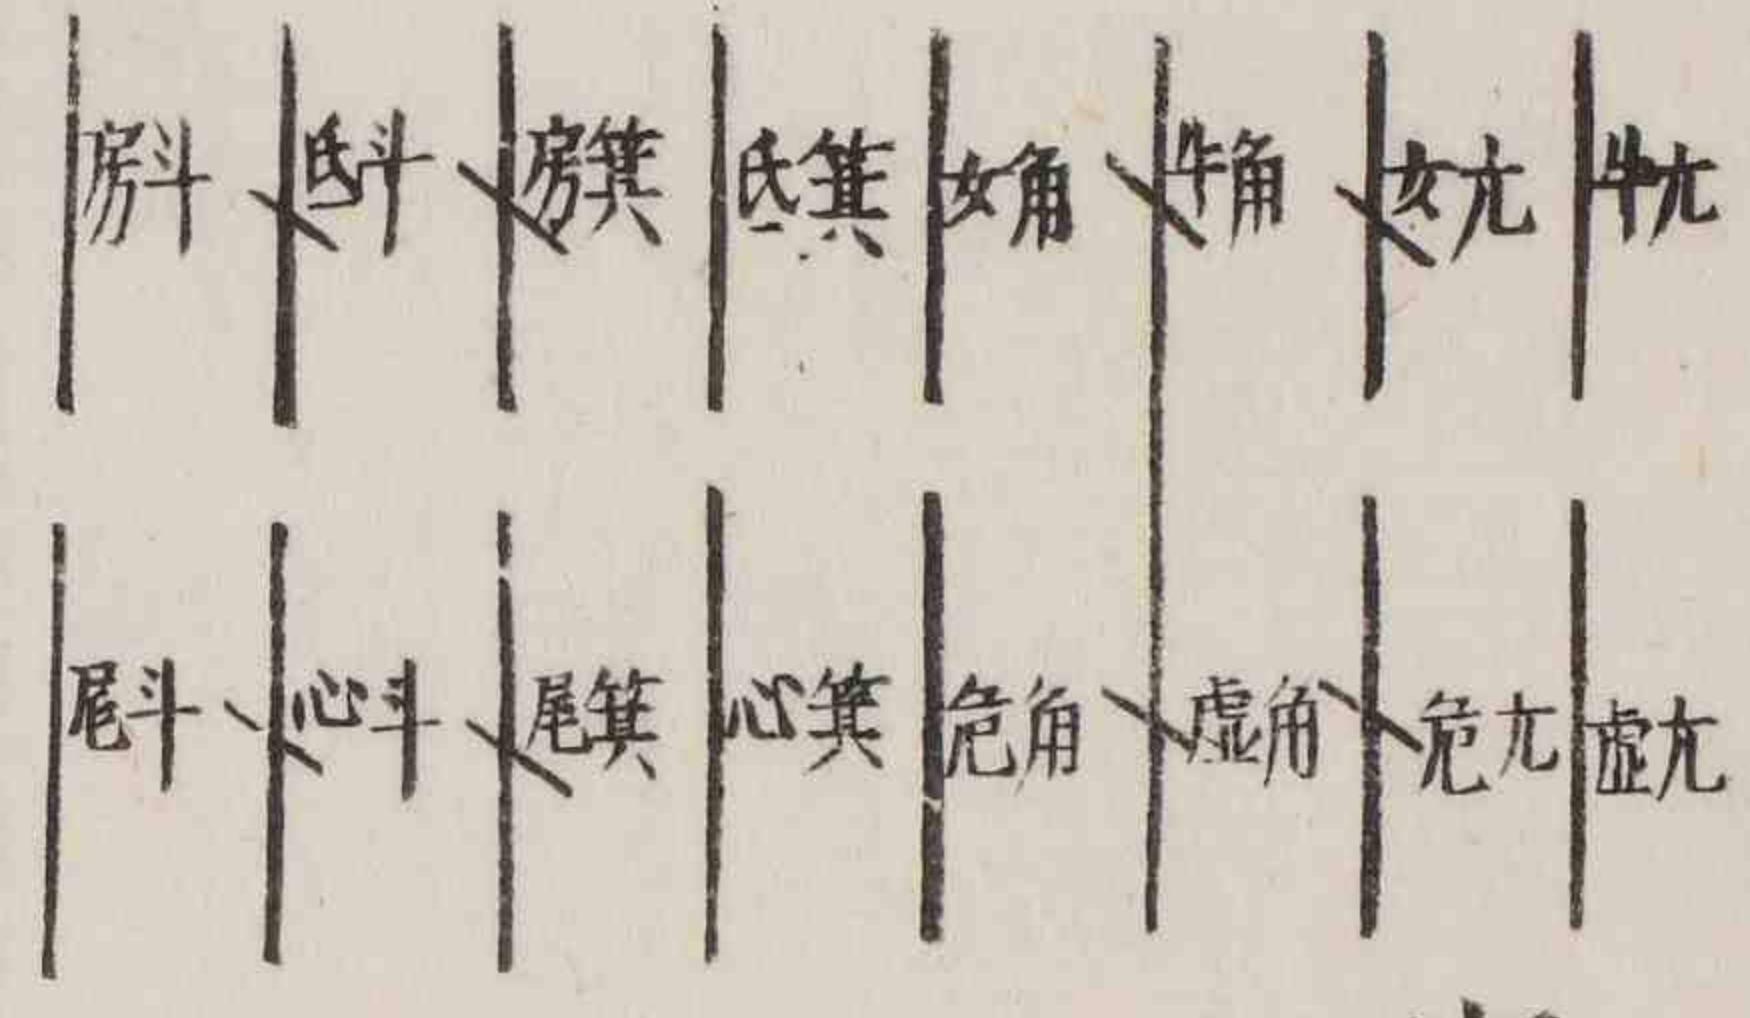 牛亢 女亢 牛角 女角 氐箕 房箕 氐斗 房斗
虚亢 危亢 虚角 危角 心箕 尾箕 心斗 尾斗